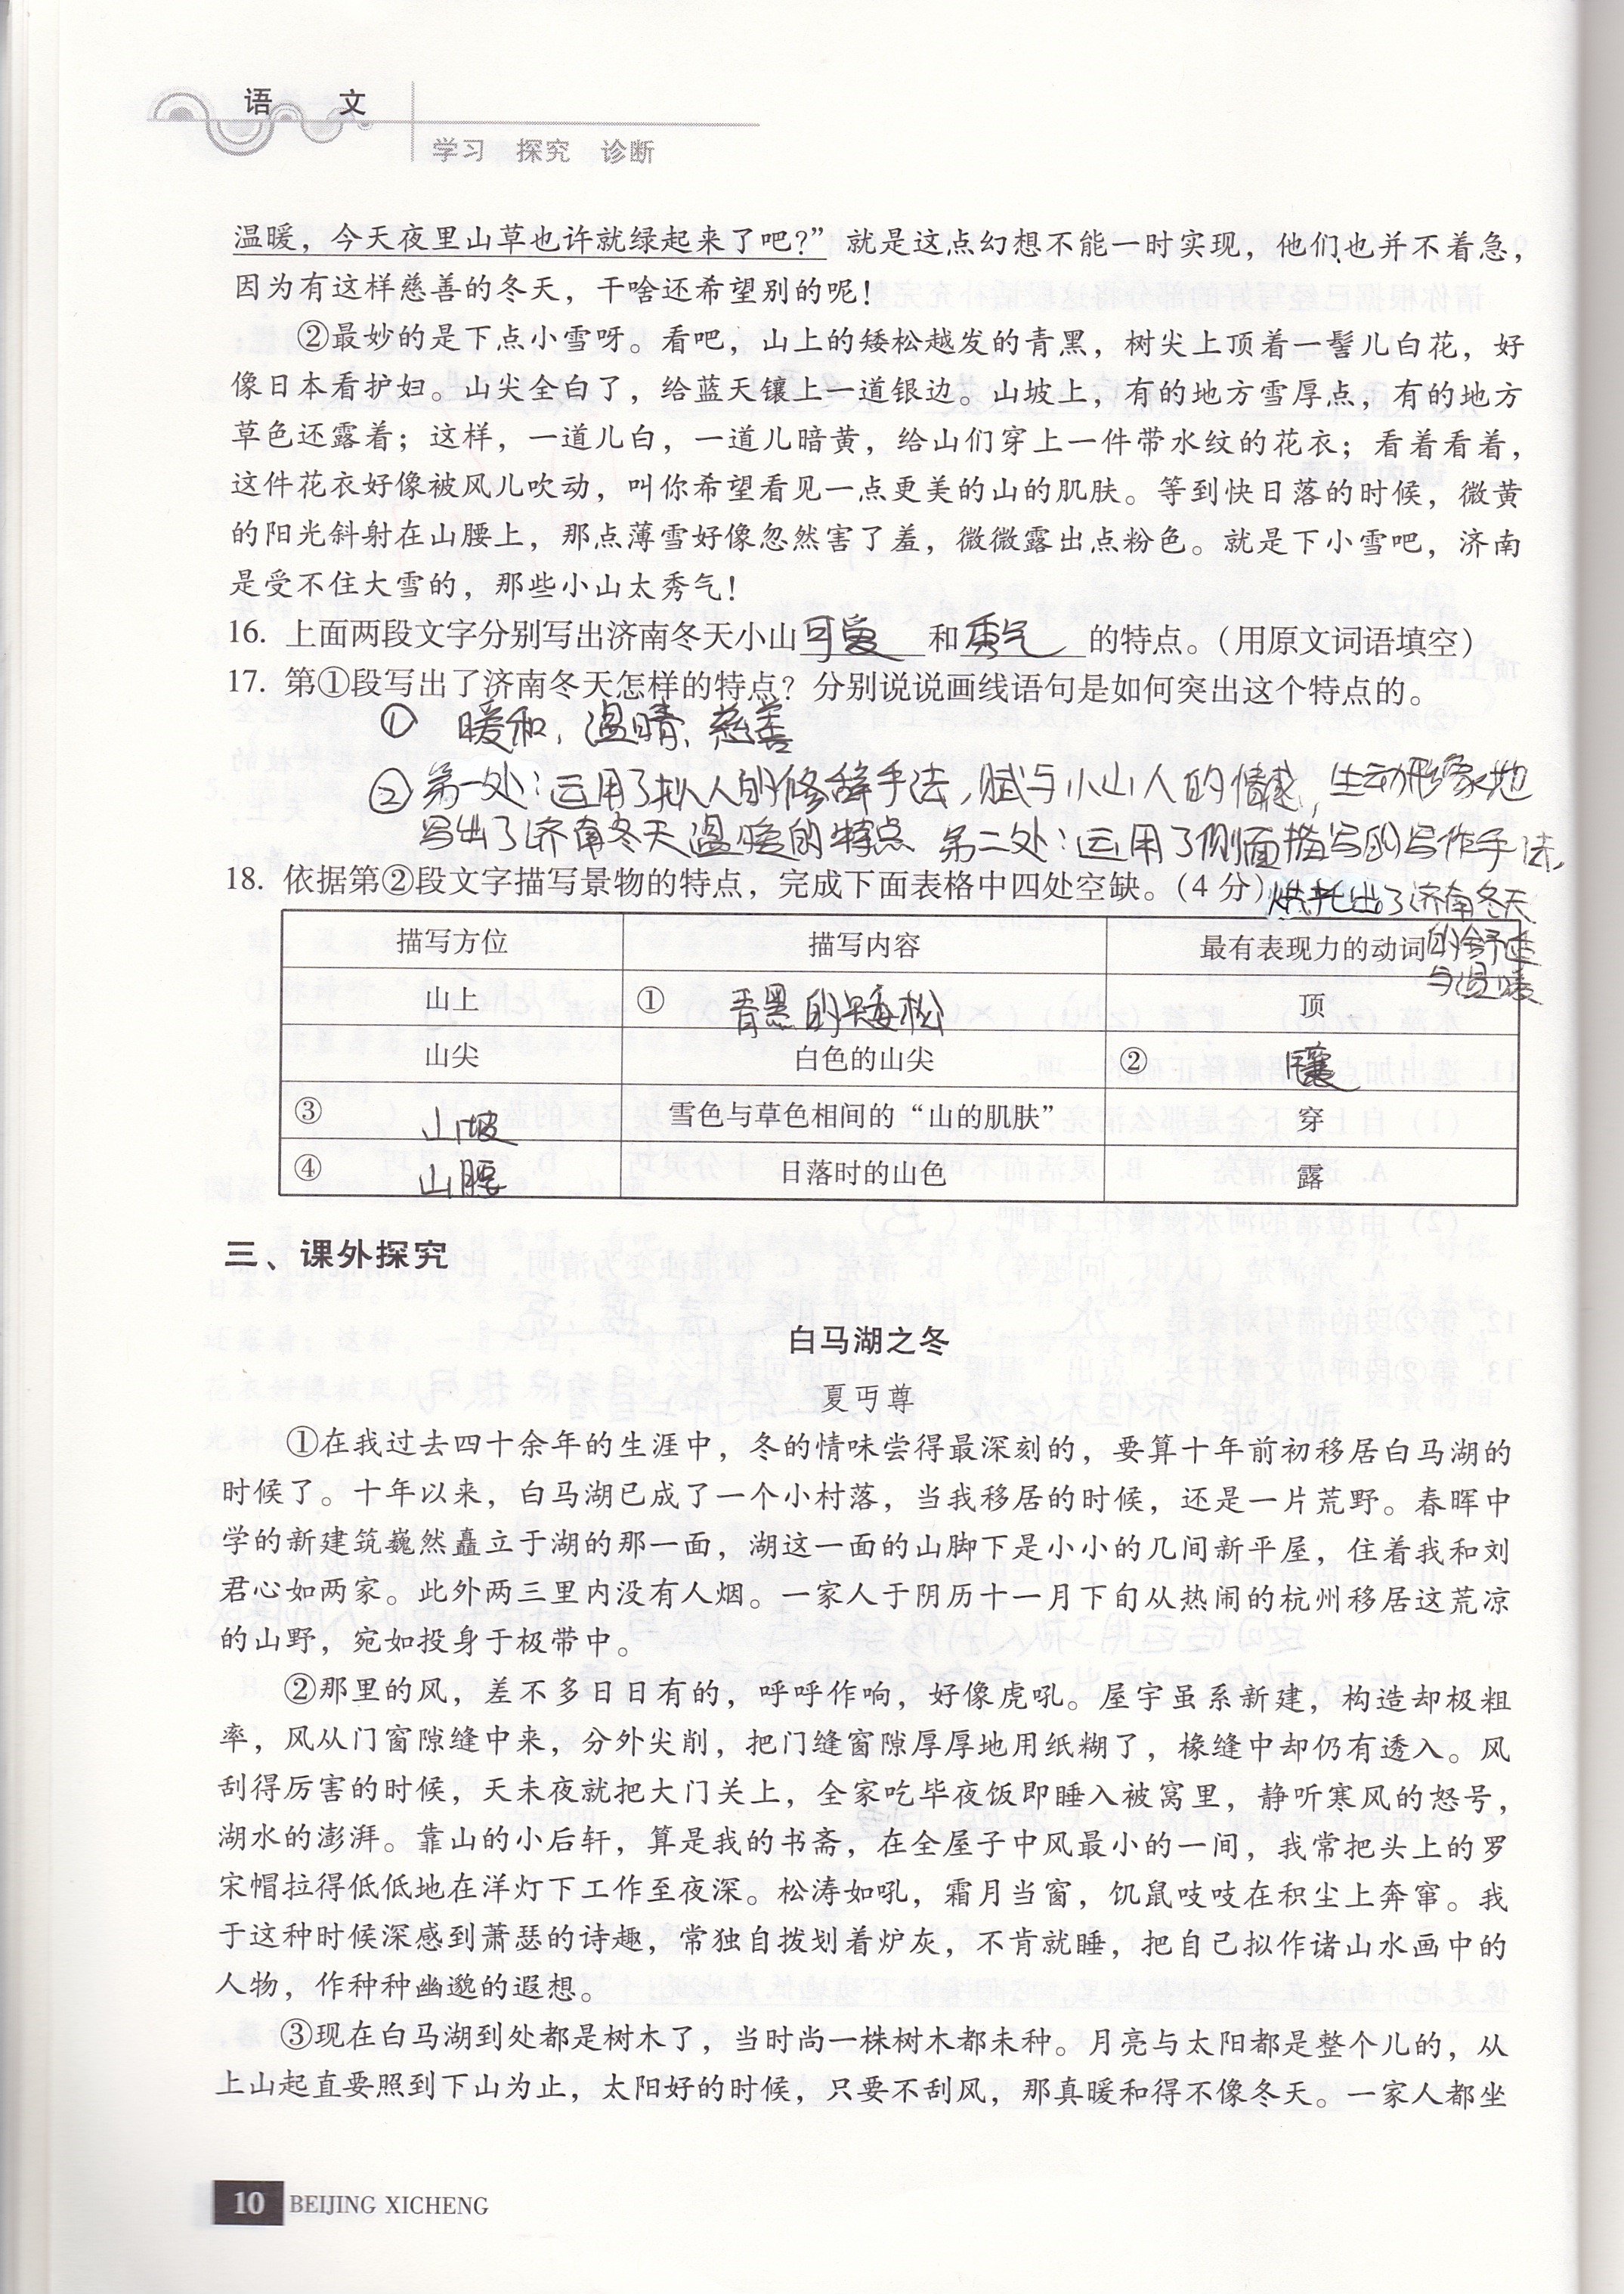 语 文
学习 探究 诊断
温暖，今天夜里山草也许就绿起来了吧？”就是这点幻想不能一时实现，他们也并不着急，
因为有这样慈善的冬天，干啥还希望别的呢！
②最妙的是下点小雪呀。看吧，山上的矮松越发的青黑，树尖上顶着一髻儿白花，好
像日本看护妇。山尖全白了，给蓝天镶上一道银边。山坡上，有的地方雪厚点，有的地方
草色还露着；这样，一道儿白，一道儿暗黄，给山们穿上一件带水纹的花衣；看着看着，
这件花衣好像被风儿吹动，叫你希望看见一点更美的山的肌肤。等到快日落的时候，微黄
的阳光斜射在山腰上，那点薄雪好像忽然害了羞，微微露出点粉色。就是下小雪吧，济南
是受不住大雪的，那些小山太秀气！
16. 上面两段文字分别写出济南冬天小山可爱和秀气的特点。（用原文词语填空）
17. 第①段写出了济南冬天怎样的特点？分别说说画线语句是如何突出这个特点的。
① 暖和、温晴、慈善
② 第一处：运用了拟人的修辞手法，赋与小山人的情感，生动形象地
写出了济南冬天温暖的特点 第二处：运用了侧面描写的写作手法，
18. 依据第②段文字描写景物的特点，完成下面表格中四处空缺。（4 分）烘托出了济南冬天
描写方位 描写内容 最有表现力的动词 的舒适
与温暖
山上 ① 青黑的矮松 顶
山尖 白色的山尖 ② 镶
③ 山坡 雪色与草色相间的“山的肌肤” 穿
④ 山腰 日落时的山色 露
三、课外探究
白马湖之冬
夏丏尊
①在我过去四十余年的生涯中，冬的情味尝得最深刻的，要算十年前初移居白马湖的
时候了。十年以来，白马湖已成了一个小村落，当我移居的时候，还是一片荒野。春晖中
学的新建筑巍然矗立于湖的那一面，湖这一面的山脚下是小小的几间新平屋，住着我和刘
君心如两家。此外两三里内没有人烟。一家人于阴历十一月下旬从热闹的杭州移居这荒凉
的山野，宛如投身于极带中。
②那里的风，差不多日日有的，呼呼作响，好像虎吼。屋宇虽系新建，构造却极粗
率，风从门窗隙缝中来，分外尖削，把门缝窗隙厚厚地用纸糊了，椽缝中却仍有透入。风
刮得厉害的时候，天未夜就把大门关上，全家吃毕夜饭即睡入被窝里，静听寒风的怒号，
湖水的澎湃。靠山的小后轩，算是我的书斋，在全屋子中风最小的一间，我常把头上的罗
宋帽拉得低低地在洋灯下工作至夜深。松涛如吼，霜月当窗，饥鼠吱吱在积尘上奔窜。我
于这种时候深感到萧瑟的诗趣，常独自拨划着炉灰，不肯就睡，把自己拟作诸山水画中的
人物，作种种幽邈的遐想。
③现在白马湖到处都是树木了，当时尚一株树木都未种。月亮与太阳都是整个儿的，从
上山起直要照到下山为止，太阳好的时候，只要不刮风，那真暖和得不像冬天。一家人都坐
10 BEIJING XICHENG